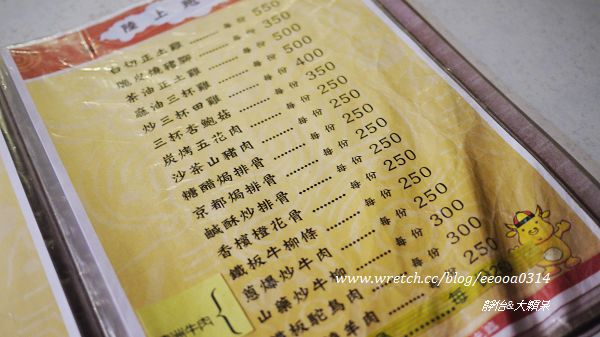 陸上
白切正土雞 每份 550
脆皮燒豬腳 每份 350
茶油正土雞 每份 500
麻油三杯雞 每份 500
炒三杯田雞 每份 400
三杯杏鮑菇 每份 350
炭烤五花肉 每份 250
沙茶山豬肉 每份 250
糖醋焗排骨 每份 250
京都焗排骨 每份 250
鹹酥炒排骨 每份 250
香檳橙花骨 每份 250
鐵板牛柳條 每份 250
蔥爆炒牛肉 每份 300
山藥炒牛柳 每份 300
板鴕鳥肉 250
羊肉
牛肉
www.wretch.cc/blog/eeooa0314
靜怡&大顆呆